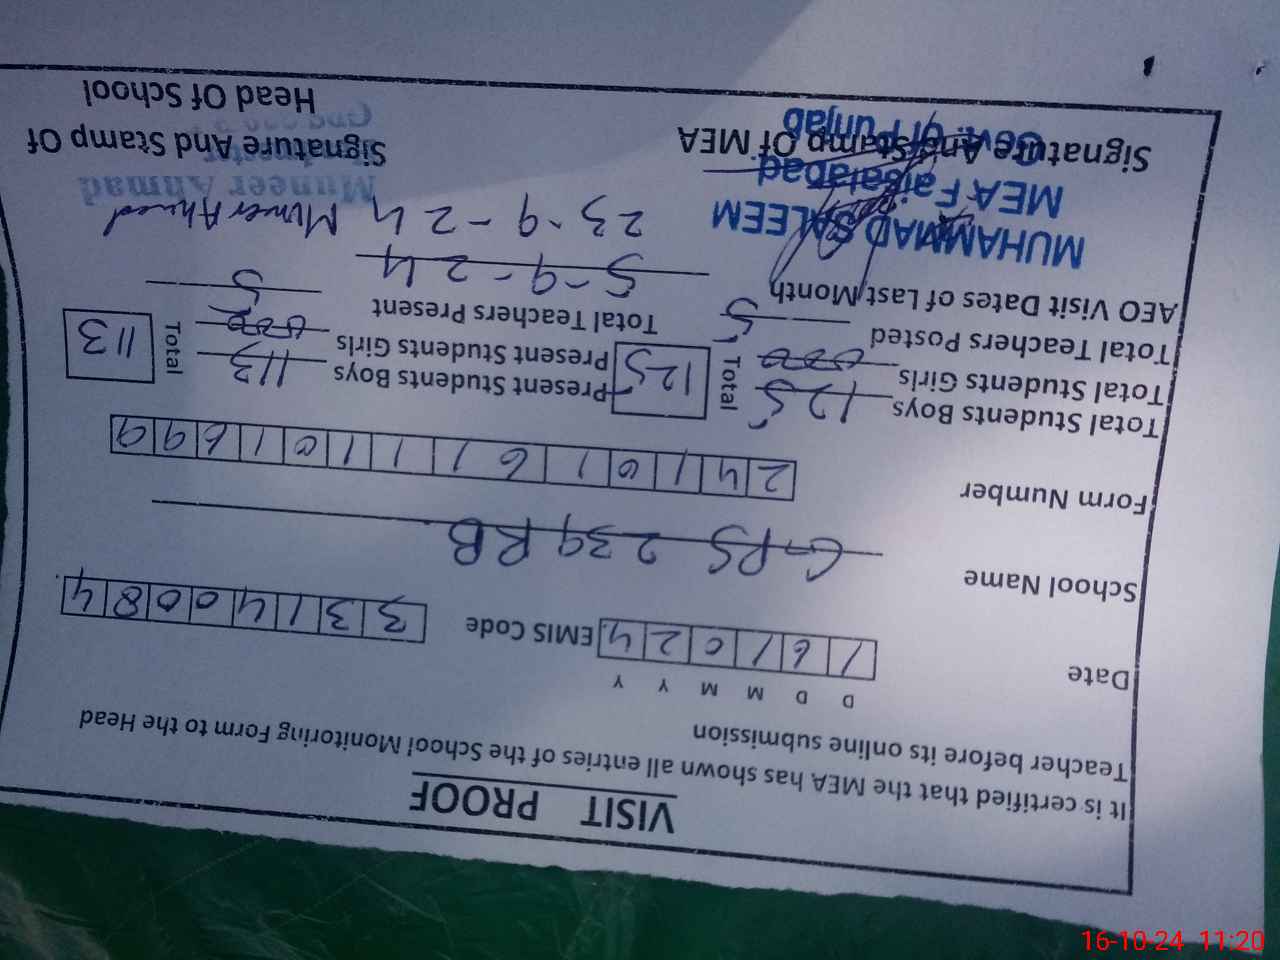 VISIT PROOF
It is certified that the MEA has shown all entries of the School Monitoring Form to the Head
Teacher before its online submission
D D M M Y Y
Date 1 6 1 0 2 4 EMIS Code 3 3 1 4 0 0 8 4
School Name GPS 239 RB
Form Number 2 4 1 0 1 6 1 1 1 0 1 6 9 9
Total Students Boys 125 Total 125 Present Students Boys 113 Total 113
Total Students Girls 000 Present Students Girls 000
Total Teachers Posted 5 Total Teachers Present 5
AEO Visit Dates of Last Month 5-9-24
23-9-24 Muneer Ahmed
MUHAMMAD SALEEM
MEA Faisalabad
Govt. Of Punjab
Muneer Ahmad
Signature And Stamp Of MEA
Signature And Stamp Of
Head Of School
16-10-24 11:20